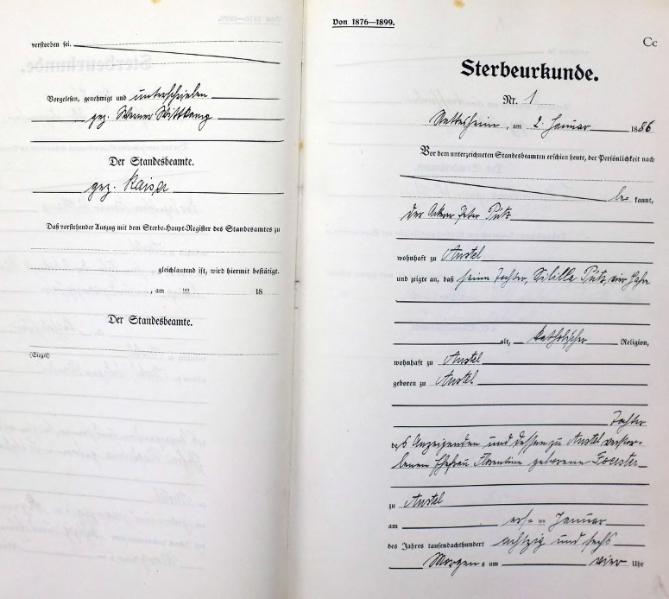 verstorben sei.
Vorgelesen, genehmigt und unterschrieben
gez. Werner Wittkamp
Der Standesbeamte.
gez. Kaiser
Daß vorstehender Auszug mit dem Sterbe-Haupt-Register des Standesamtes zu
gleichlautend ist, wird hiermit bestätigt.
, am ten 18
Der Standesbeamte.
(Siegel)
Von 1876—1899.
Cc
Sterbeurkunde.
Nr. 1
Nettesheim, am 2. Januar 1886
Vor dem unterzeichneten Standesbeamten erschien heute, der Persönlichkeit nach
be kannt,
der Ackerer Peter Pütz
wohnhaft zu Anstel
und zeigte an, daß seine Tochter, Sibilla Pütz, vier Jahre
alt, katholischer Religion,
wohnhaft zu Anstel
geboren zu Anstel
Tochter
des Anzeigenden und dessen zu Anstel verstor-
benen Ehefrau Florentine geborene Foerster
zu Anstel
am ersten Januar
des Jahres tausendachthundert achtzig und sechs
Morgens um vier Uhr